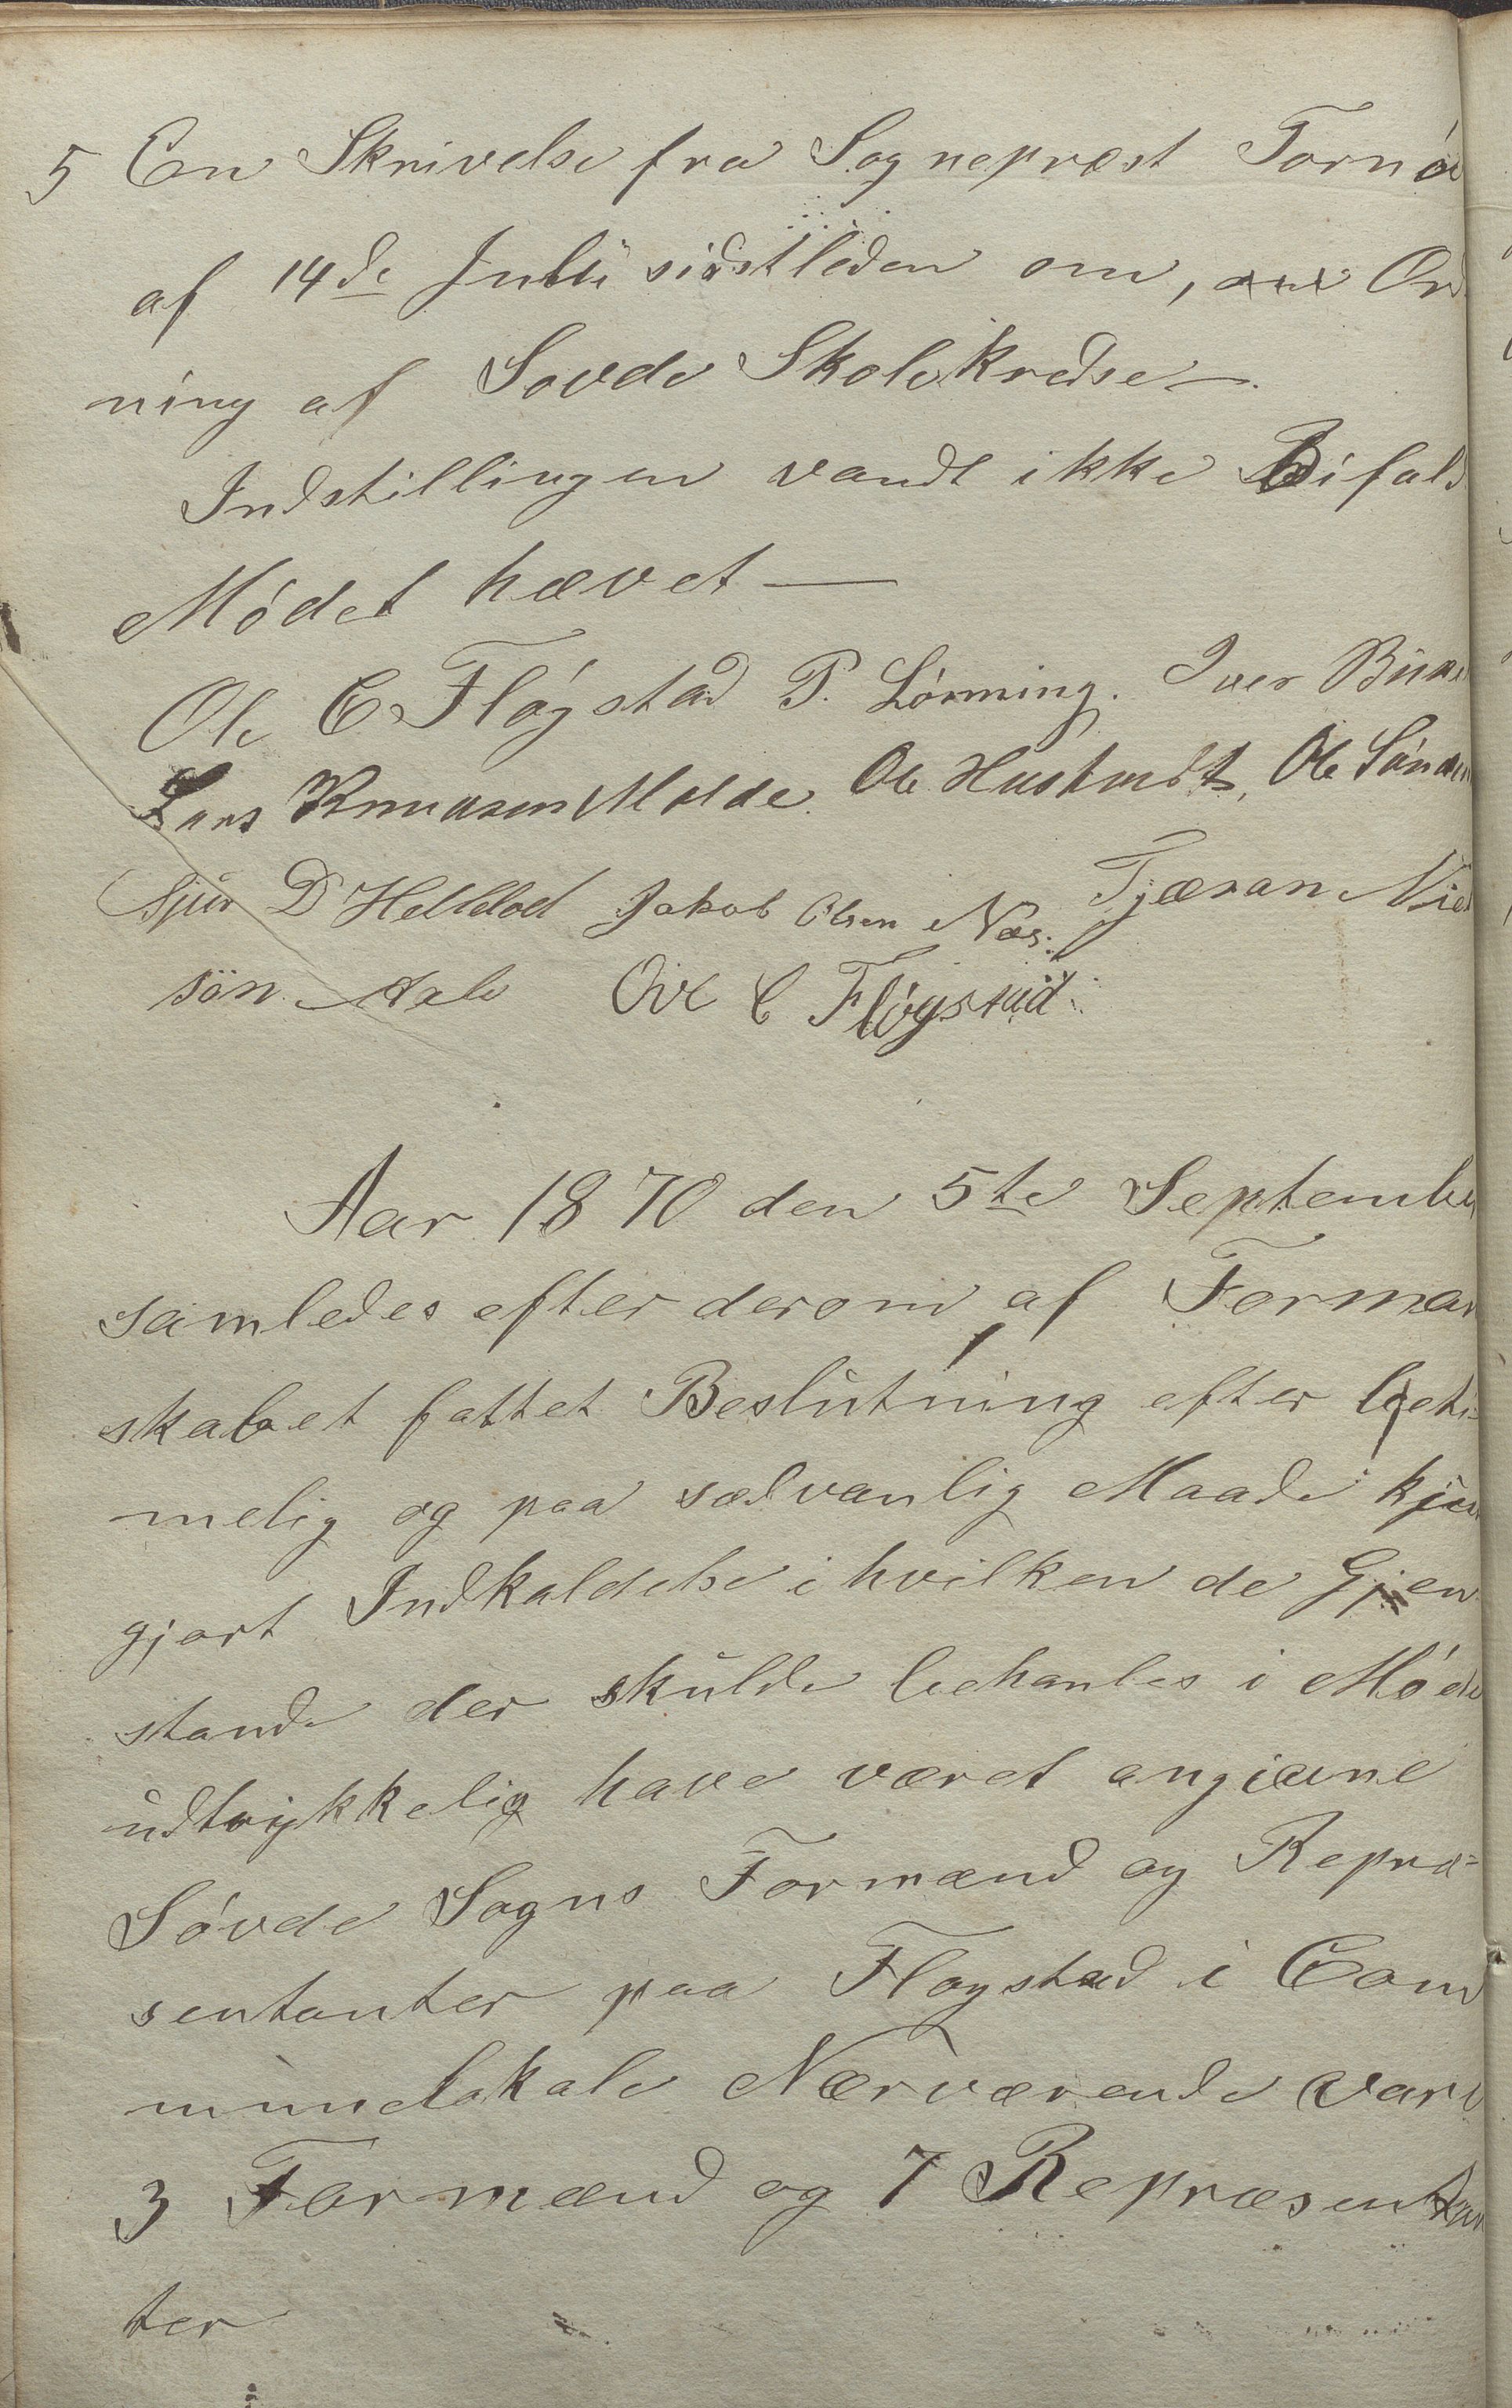 5 En Skrivelse fra Sognepræst Tornøe
af 14de Juli sidstleden om, Ord
ning af Sovde Skolekredse—
Indstillingen vandt ikke Bifald
Mödet hævet —
Ole C Flógstad P. Lörning. Iver
Lars Knudsen Molde. Ole Hustvedt, Ole
Sjur D Helleled Jakob Olsen Næs. Tjæran Niel
sön. Aale Ove C Flögstad
Aar 1870 den 5te September
samledes efter derom af Forman
skabet fattet Beslutning efter beti=
melig og paa sædvanlig Maade kjend
gjort Indkaldelse i hvilken de Gjen
stande der skulde behanles i Móde
udtrykkelig have været angivne
Sóvde Sogns Formænd og Repræ=
sentanter paa Flogstad i Com
munelokale Nærværende vare
3 Formænd og 7 Repræsentan
ter